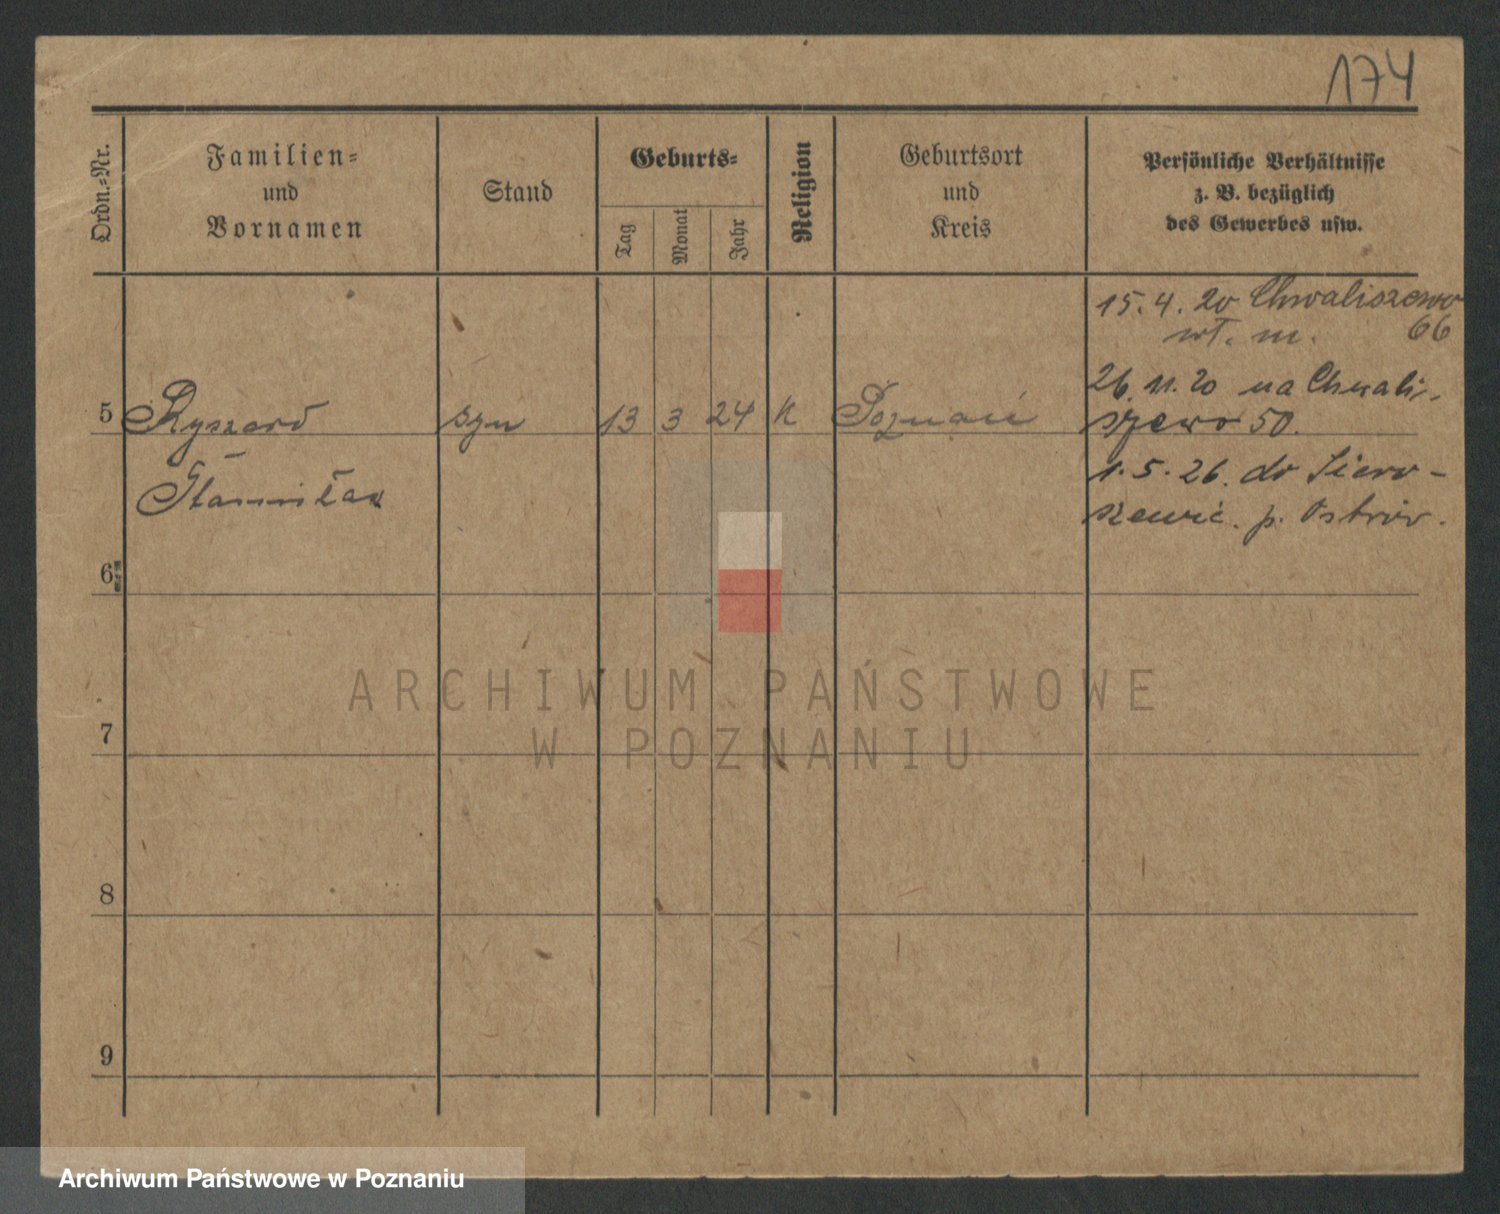 174
Ordn.-Nr.
Familien-
und
Vornamen
Stand
Geburts-
Tag
Monat
Jahr
Religion
Geburtsort
und
Kreis
Persönliche Verhältnisse
z. B. bezüglich
des Gewerbes usw.
15. 4. 20 Chwaliszewo
wł. m. 66
26. 11. 20 na Chwali-
szewo 50.
5 Ryszard syn 13 3 24 K Poznań
Stanisław
1. 5. 26. do Siero-
szewic. p. Ostrów.
6
7
8
9
ARCHIWUM PAŃSTWOWE
W POZNANIU
Archiwum Państwowe w Poznaniu